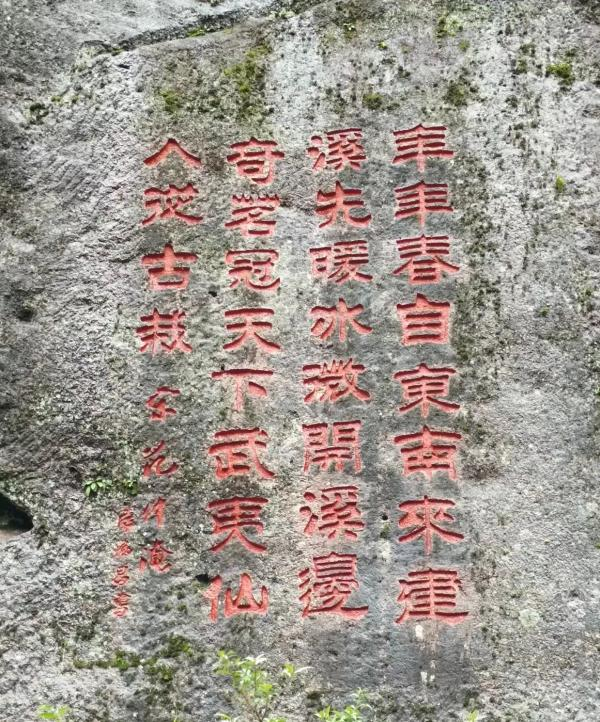 年年春自東南來建
溪先暖冰微開溪邊
奇茗冠天下武夷仙
人從古栽 宋 范仲淹
書